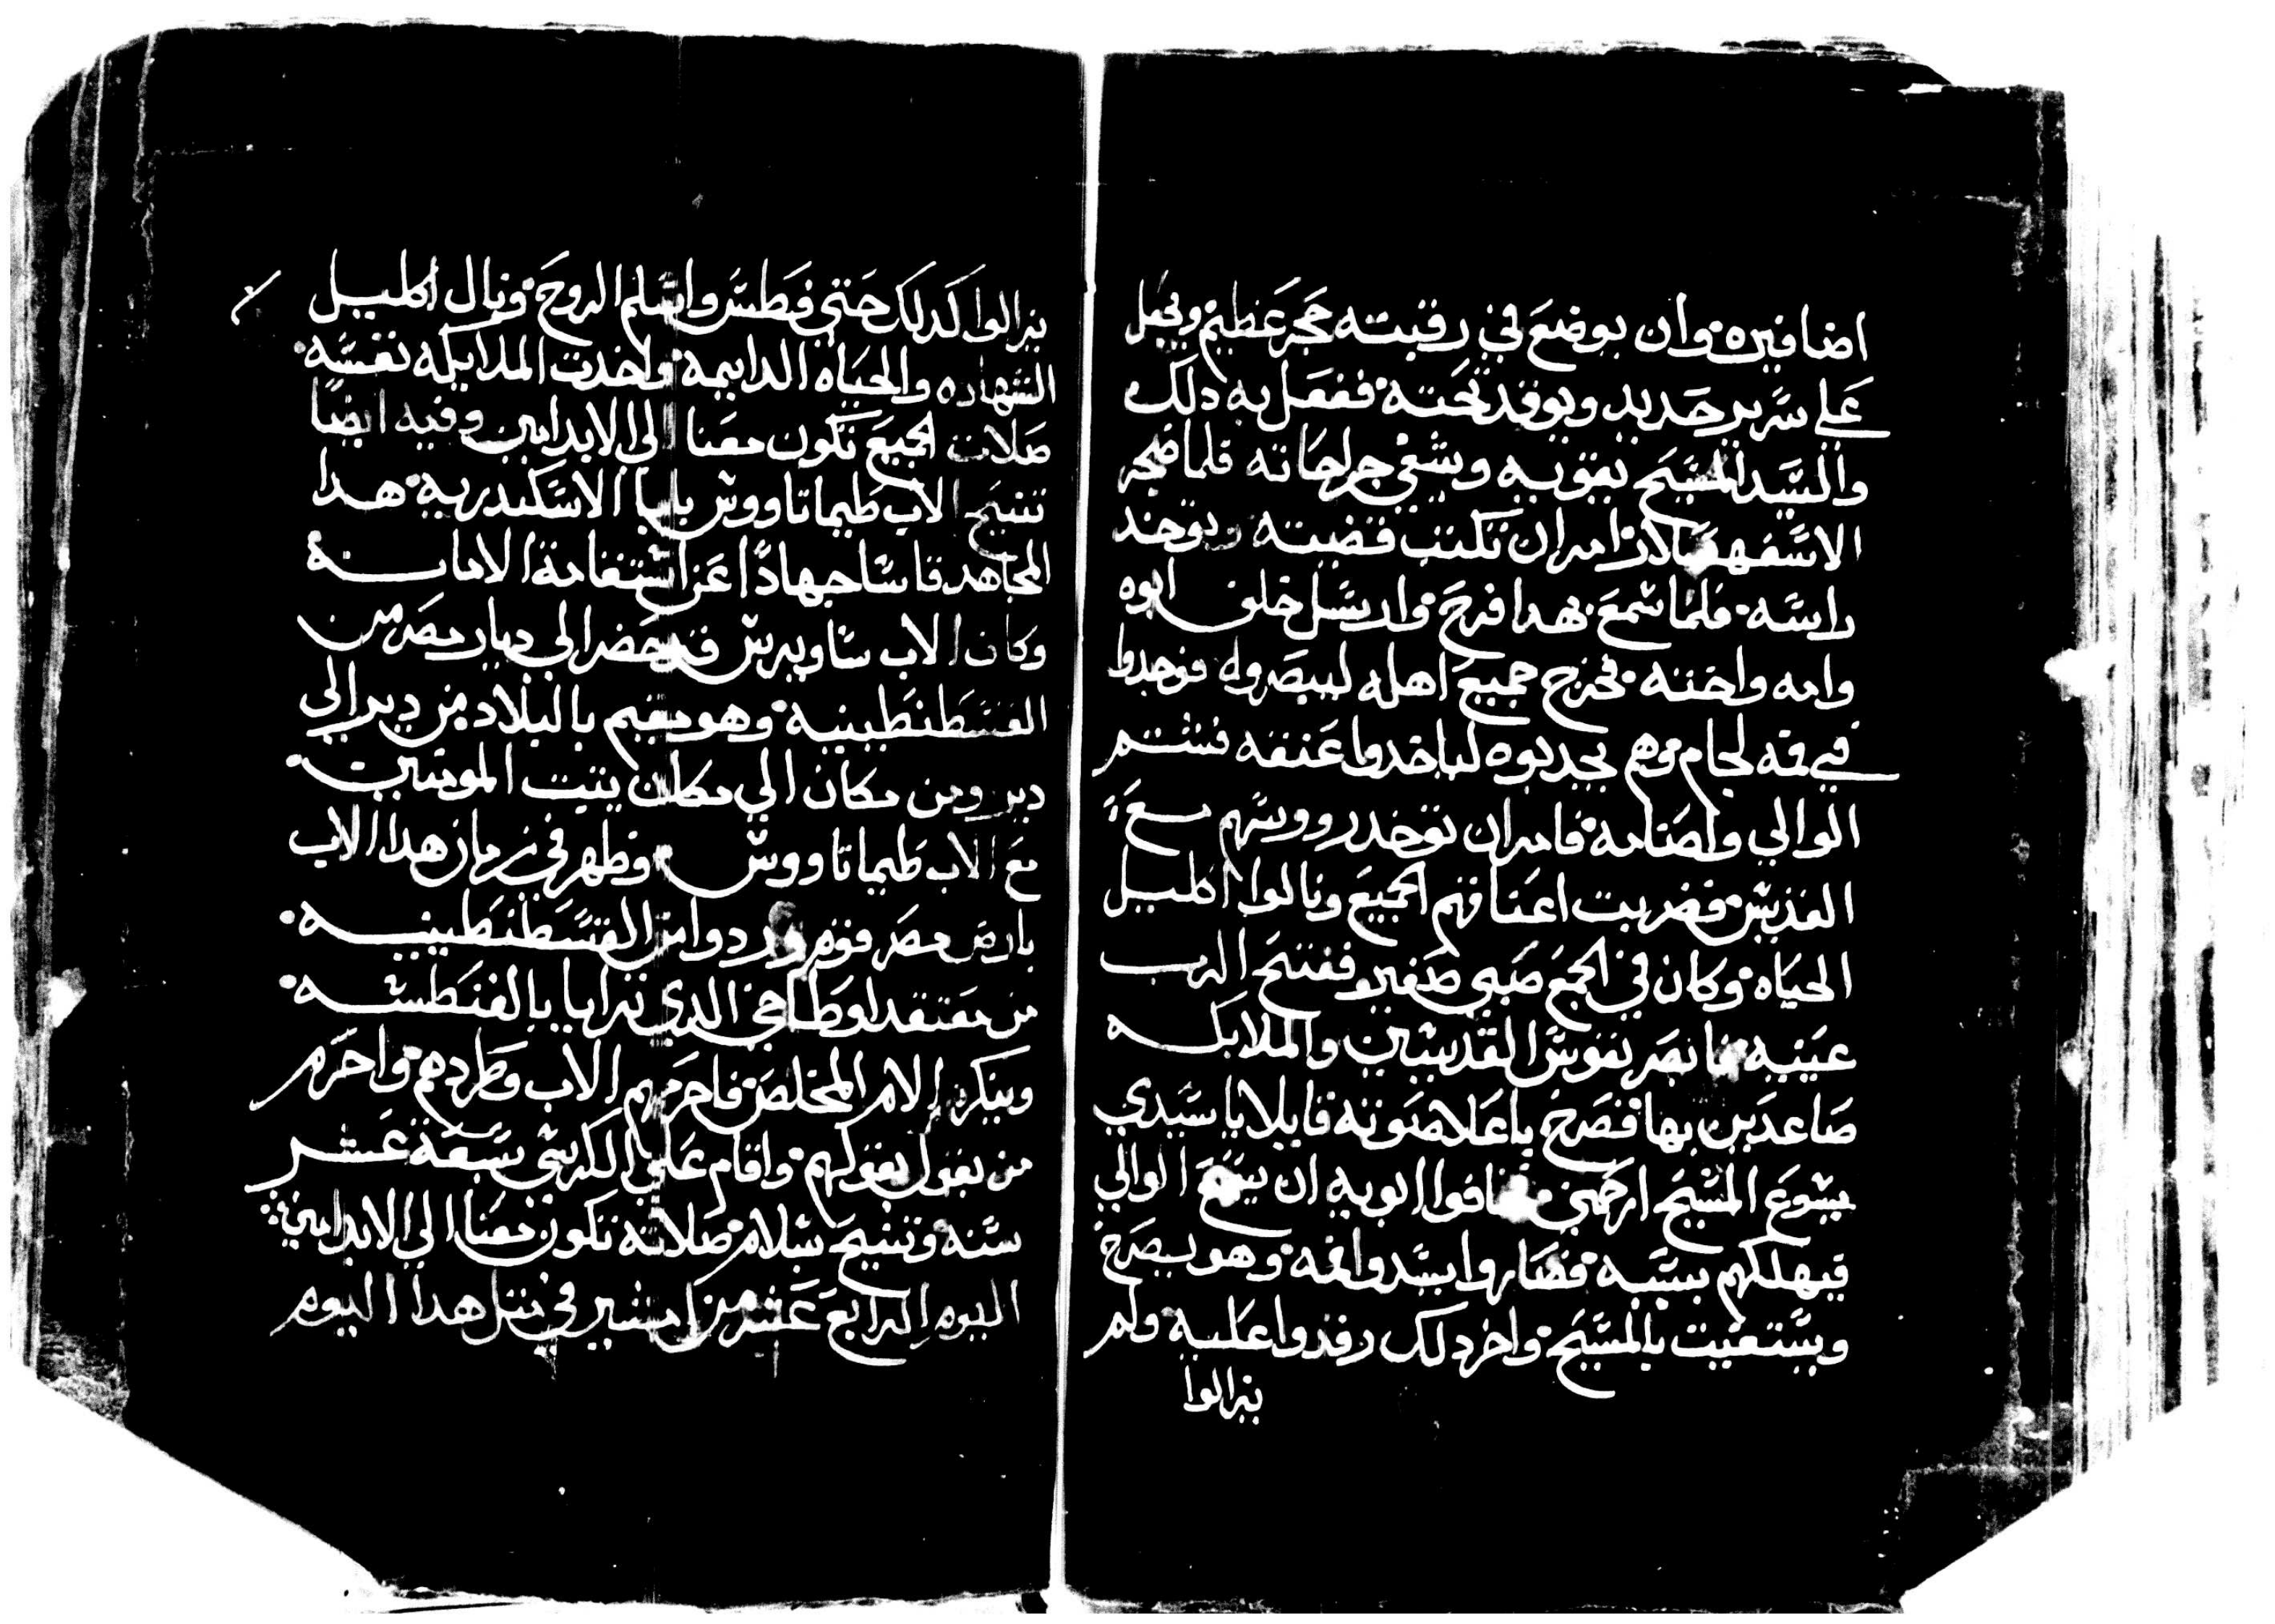 اضافيره وان يوضع في رقبته حجر عظيم ويجعل
علي سرير حديد ويوقد تحته ففعل به دلك
والسيد المسيح يقويه ويشفي جراحاته فلما ضجر
الاسفهسلار امران تكتب قضيته وتوخد
راسه فلما سمع بهدا فرح وارسل خلف ابوه
وامه واخته فخرج جميع اهله ليبصروه فوجدوا
في فمه لجام وهم يجدبوه لياخدوا عنقه فشتم
الوالي واصنامه فامران توخد رووسهم مع
القديس فضربت اعناقهم الجميع ونالوا اكليل
الحياه وكان في الجمع صبي صغير ففتح الرب
عينيه فابصر نفوس القديسين والملايكه
صاعدين بها فصرخ باعلا صوته قايلا يا سيدي
يسوع المسيح ارحمني فخافوا ابويه ان يسمع الوالي
فيهلكهم بسببه فصاروا يسدوا فمه وهو يصرخ
ويستغيت بالمسيح واخر دلك رفدوا عليه ولم
يزالوا
يزالوا كدلك حتي فطس واسلم الروح ونال اكليل
الشهاده والحياه الدايمه واخدت الملايكه نفسه
صلات الجميع تكون معنا الي الابد امين وفيه ايضا
تنيح الاب طيماتاووس بابا الاسكندريه هدا
المجاهد قاسا جهادا عن استقامة الامانة
وكان الاب ساويرس قد حضر الي ديار مصر من
القسطنطينيه وهو مقيم بالبلاد من دير الي
دير ومن مكان الي مكان يتبت المومنين
مع الاب طيماتاووس وظهر في زمان هدا الاب
بارض مصر قوم وردوا من القسطنطينيه
من معتقد اوطاخي الدي تزايا بالفنطسه
وينكر الالام المخلصه فاحرمهم الاب وطردهم واحرم
من يقول بقولهم واقام علي الكرسي سبعة عشر
سنه وتنيح بسلام صلاته تكون معنا الي الابد امين
اليوم الرابع عشر من امشير في متل هدا اليوم